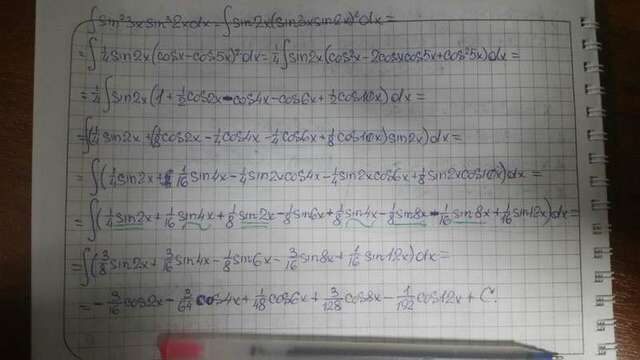 ∫sin²3x sin³2x dx = ∫sin2x(sin3x sin2x)²dx =
= ∫¼sin2x(cosx-cos5x)²dx = ¼∫sin2x(cos²x - 2cosxcos5x + cos²5x)dx =
= ¼∫sin2x(1 + ½cos2x - cos4x - cos6x + ½cos10x)dx =
= ∫(¼sin2x + (⅛cos2x - ¼cos4x - ¼cos6x + ⅛cos10x)sin2x)dx =
= ∫(¼sin2x + 1/16 sin4x - ¼sin2xcos4x - ¼sin2xcos6x + ⅛sin2xcos10x)dx =
= ∫(¼sin2x + 1/16 sin4x + ⅛sin2x - ⅛sin6x + ⅛sin4x - ⅛sin8x - 1/16 sin8x + 1/16 sin12x)dx =
= ∫(3/8 sin2x + 3/16 sin4x - ⅛sin6x - 3/16 sin8x + 1/16 sin12x)dx =
= - 3/16 cos2x - 3/64 cos4x + 1/48 cos6x + 3/128 cos8x - 1/192 cos12x + C.